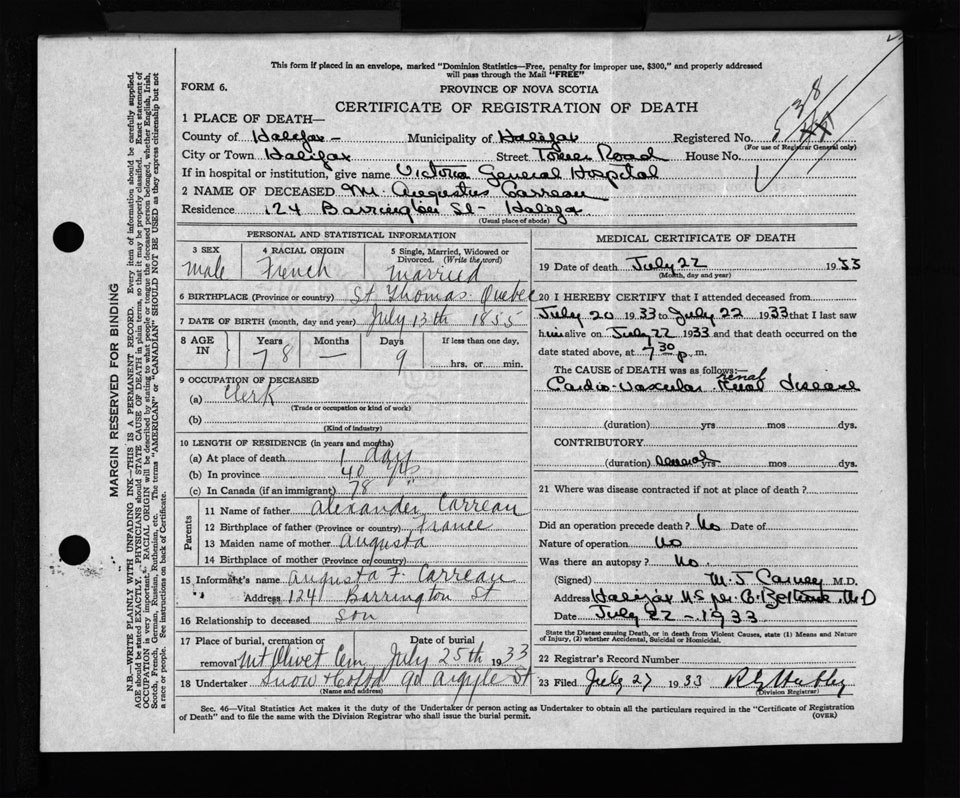 This form if placed in an envelope, marked "Dominion Statistics—Free, penalty for improper use, $300," and properly addressed
will pass through the Mail "FREE"
FORM 6.
PROVINCE OF NOVA SCOTIA
CERTIFICATE OF REGISTRATION OF DEATH
1 PLACE OF DEATH—
County of Halifax Municipality of Halifax Registered No. 538
(For use of Registrar General only)
City or Town Halifax Street Tower Road House No.
If in hospital or institution, give name Victoria General Hospital
2 NAME OF DECEASED M. Augustus Carreau
Residence 124 Barrington St- Halifax
(Usual place of abode)
MARGIN RESERVED FOR BINDING
N.B.—WRITE PLAINLY WITH UNFADING INK—THIS IS A PERMANENT RECORD. Every item of information should be carefully supplied.
AGE should be stated EXACTLY. PHYSICIANS should STATE CAUSE OF DEATH in plain terms, so that it may be properly classified. Exact statement of
OCCUPATION is very important. RACIAL ORIGIN will be described by stating to what people or tongue the deceased person belonged, whether English, Irish,
Scotch, French, German, Russian, Ruthenian, etc. The terms "AMERICAN" or "CANADIAN" SHOULD NOT BE USED as they express citizenship but not
a race or people. See instructions on back of Certificate.
PERSONAL AND STATISTICAL INFORMATION
3 SEX 4 RACIAL ORIGIN 5 Single, Married, Widowed or
Divorced. (Write the word)
Male French married
6 BIRTHPLACE (Province or country) St Thomas Quebec
7 DATE OF BIRTH (month, day and year) July 13th 1855
8 AGE IN Years Months Days If less than one day,
78 — 9 hrs. or min.
9 OCCUPATION OF DECEASED
(a) Clerk
(Trade or occupation or kind of work)
(b)
(Kind of industry)
10 LENGTH OF RESIDENCE (in years and months)
(a) At place of death 1 day
(b) In province 40 yrs
(c) In Canada (if an immigrant) 78 "
Parents
11 Name of father Alexander Carreau
12 Birthplace of father (Province or country) France
13 Maiden name of mother Augusta
14 Birthplace of mother (Province or country)
15 Informant's name Augusta F. Carreau
" Address 124 Barrington St
16 Relationship to deceased Son
17 Place of burial, cremation or Date of burial
removal Mt Olivet Cem July 25th 1933
18 Undertaker Snow 90 Argyle St
(Name and address)
MEDICAL CERTIFICATE OF DEATH
19 Date of death July 22 1933
(Month, day and year)
20 I HEREBY CERTIFY that I attended deceased from
July 20 1933 to July 22 1933 that I last saw
him alive on July 22 1933 and that death occurred on
date stated above, at 7 30 p. m.
The CAUSE of DEATH was as follows:—
Cardio-vascular renal disease
(duration) yrs mos dys.
CONTRIBUTORY
(duration) several yrs mos dys.
21 Where was disease contracted if not at place of death?
Did an operation precede death? No Date of
Nature of operation No
Was there an autopsy? No.
(Signed) M. J. Carney M.D.
Address Halifax N.S. per M D
Date July 22 - 1933
State the Disease causing Death, or in death from Violent Causes, state (1) Means and Nature
of Injury, (2) whether Accidental, Suicidal or Homicidal.
22 Registrar's Record Number
23 Filed July 27 1933
(Division Registrar)
Sec. 46—Vital Statistics Act makes it the duty of the Undertaker or person acting as Undertaker to obtain all the particulars required in the "Certificate of Registration
of Death" and to file the same with the Division Registrar who shall issue the burial permit.
(OVER)